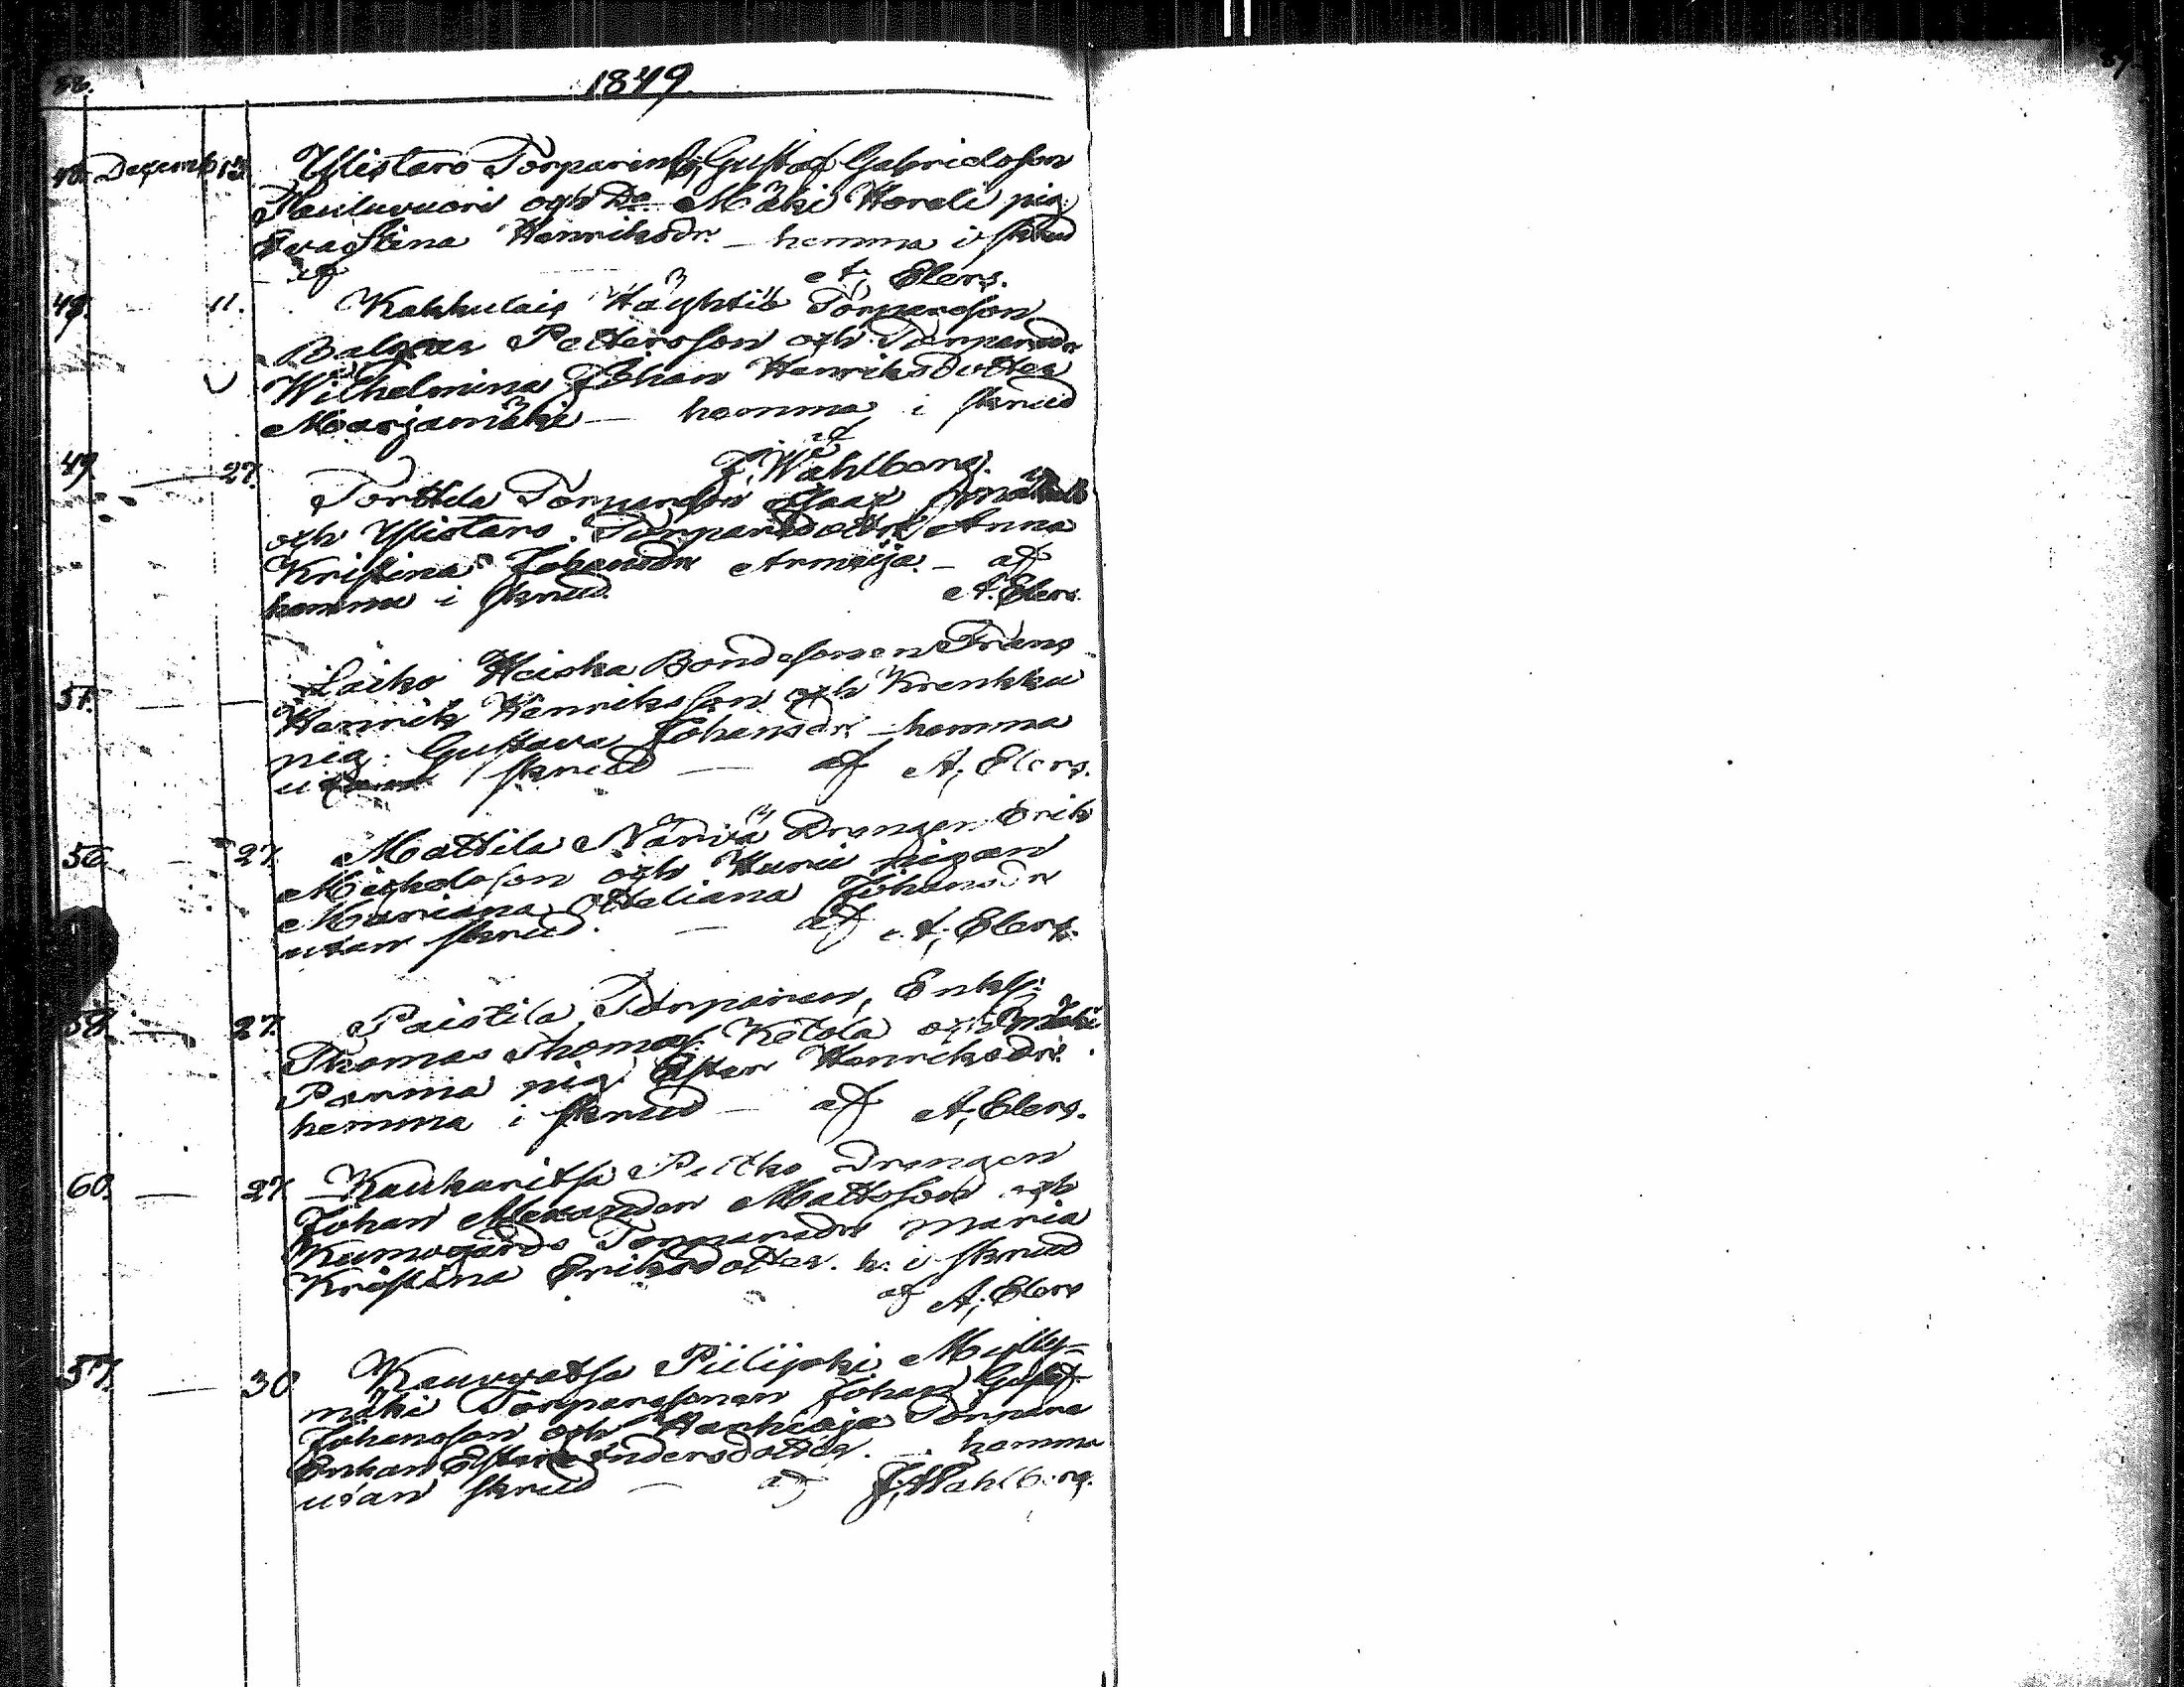 86.
1849.
87.
48. Decemb 13. Ylistaro Torparen Gustaf Gabrielsson
och Do Mäki Horeli pig.
Eva Stina Henriksdr. – hemma i skrud
af A; Elers.
49. 11. Kakkulais Häyhtiö Torpareson
Petterson och Torparedr
Wilhelmina Johan Henriksdotter
Marjamäki – hemma i skrud
af
F; Wahlberg.
49. — 27. Torttila Torpareson Isaac
och Ylistaro Torparedotter Anna
Kristina Johansdr Armaija. – af
hemma i skrud. A. Elers.
Laiko Heiska Bondesonen Frans
51. — — Henrik Henriksson och Krenkku
pig. Gustava Johansdr – hemma
skrud — af A; Elers.
56. — 27. Mattila Närvä Drengen Erik
Michelsson och Hurri pigan
Mariana Heliana Johansdr
utan skrud. — af A; Elers.
58. — 27. Paistila Torparen, Enkl:
Thomas Thomass: Ketola och
pig. Ester Henriksdr.
hemma i skrud – af A; Elers.
60. — 27. Kaukaritsa Peltko Drengen
Johan Alexander Mattsson och
Kumogårds Torparedr Maria
Kristina Eriksdotter. h. i skrud
af A; Elers
57. — 30 Kauvatsa Piilijoki Mylly=
mäki Torparesonen Johan Gust.
Johansson och Harhioja Torpare
Enkan Ester Andersdotter. – hemma
utan skrud — af F; Wahlberg.